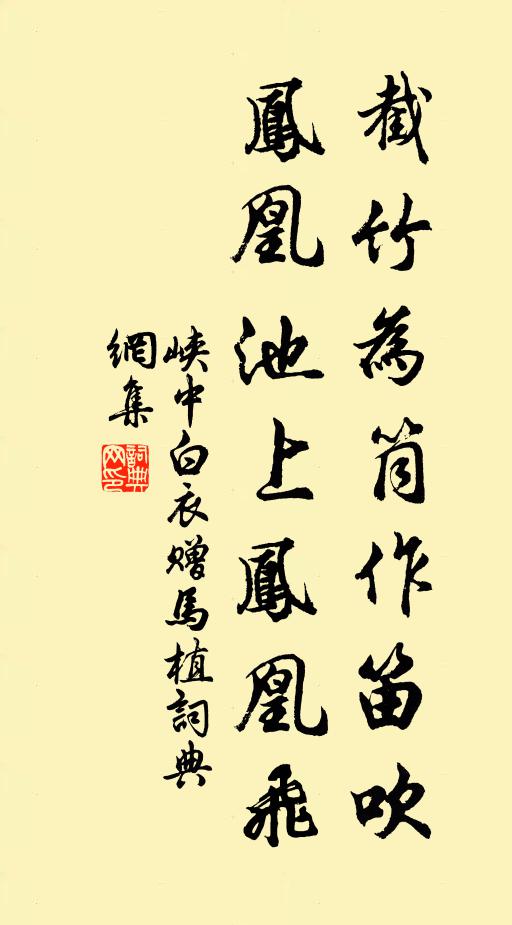 截竹為筒作笛吹
鳳凰池上鳳凰飛
峽中白衣贈馬植詞典
網集
詞典
网印